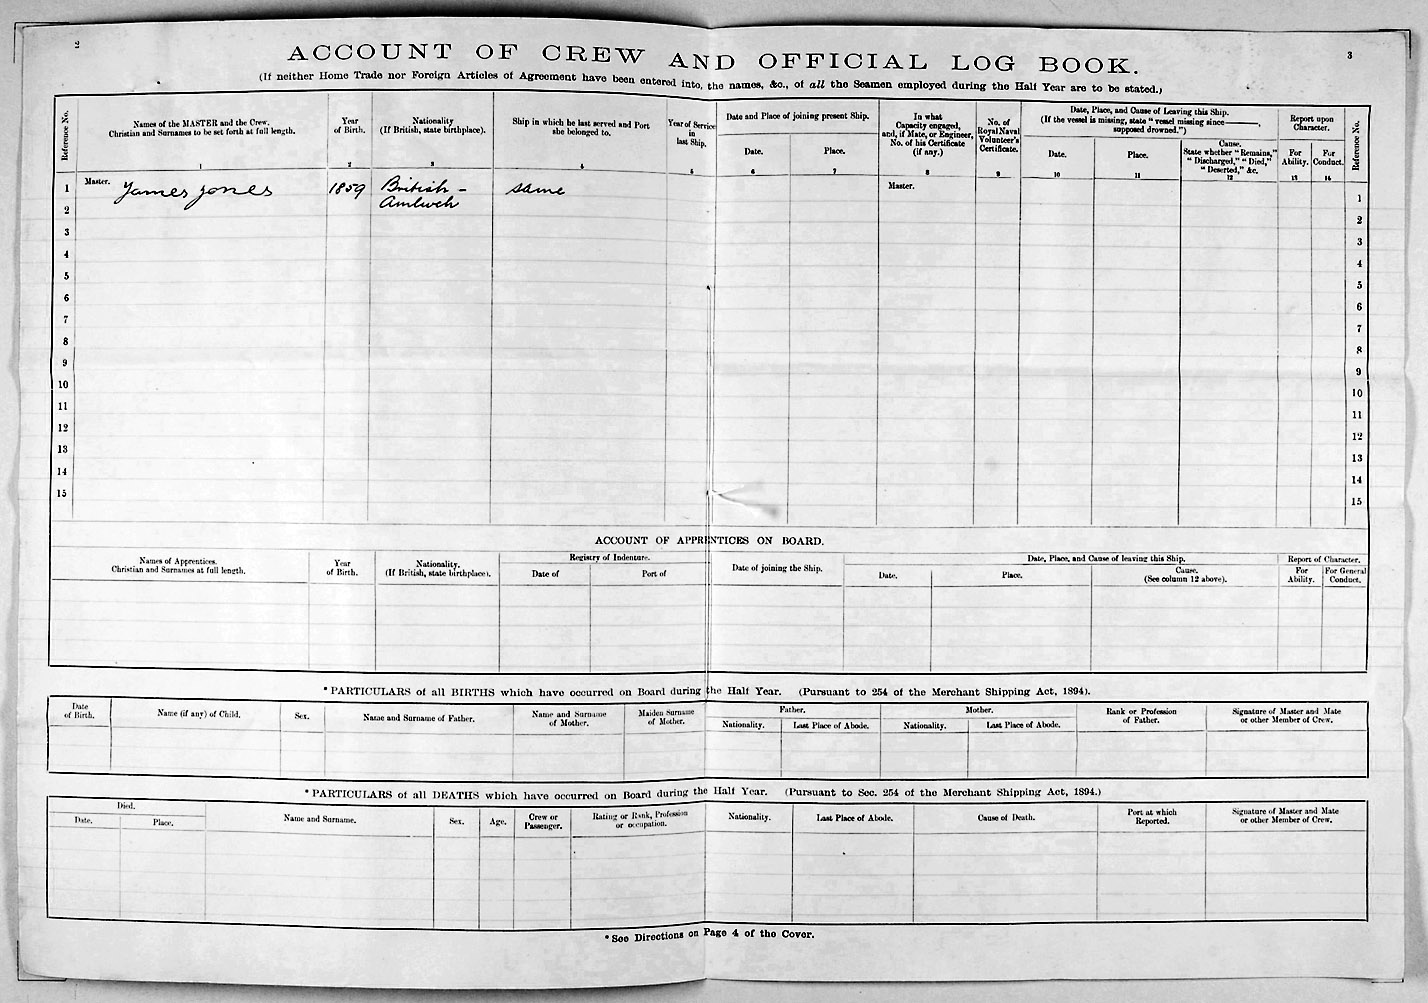 2
3
ACCOUNT OF CREW AND OFFICIAL LOG BOOK.
(If neither Home Trade nor Foreign Articles of Agreement have been entered into, the names, &c., of all the Seamen employed during the Half Year are to be stated.)
Reference No.
Names of the MASTER and the Crew.
Christian and Surnames to be set forth at full length.
1
Year
of Birth.
2
Nationality
(If British, state birthplace).
3
Ship in which he last served and Port
she belonged to.
4
Year of Service
in
last Ship.
5
Date and Place of joining present Ship.
Date.
6
Place.
7
In what
Capacity engaged,
and, if Mate, or Engineer,
No. of his Certificate
(if any.)
8
No. of
Royal Naval
Volunteer's
Certificate.
9
Date, Place, and Cause of Leaving this Ship.
(If the vessel is missing, state "vessel missing since ———,
supposed drowned.")
Date.
10
Place.
11
Cause.
State whether "Remains,"
"Discharged," "Died,"
"Deserted," &c.
12
Report upon
Character.
For
Ability.
13
For
Conduct.
14
Reference No.
1 Master. James Jones 1859 British - same Master. 1
Amlwch
2 2
3 3
4 4
5 5
6 6
7 7
8 8
9 9
10 10
11 11
12 12
13 13
14 14
15 15
ACCOUNT OF APPRENTICES ON BOARD.
Names of Apprentices.
Christian and Surnames at full length.
Year
of Birth.
Nationality.
(If British, state birthplace).
Registry of Indenture.
Date of
Port of
Date of joining the Ship.
Date, Place, and Cause of leaving this Ship.
Date.
Place.
Cause.
(See column 12 above).
Report of Character.
For
Ability.
For General
Conduct.
*PARTICULARS of all BIRTHS which have occurred on Board during the Half Year. (Pursuant to 254 of the Merchant Shipping Act, 1894).
Date
of Birth.
Name (if any) of Child.
Sex.
Name and Surname of Father.
Name and Surname
of Mother.
Maiden Surname
of Mother.
Father.
Nationality.
Last Place of Abode.
Mother.
Nationality.
Last Place of Abode.
Rank or Profession
of Father.
Signature of Master and Mate
or other Member of Crew.
*PARTICULARS of all DEATHS which have occurred on Board during the Half Year. (Pursuant to Sec. 254 of the Merchant Shipping Act, 1894.)
Died.
Date.
Place.
Name and Surname.
Sex.
Age.
Crew or
Passenger.
Rating or Rank, Profession
or occupation.
Nationality.
Last Place of Abode.
Cause of Death.
Port at which
Reported.
Signature of Master and Mate
or other Member of Crew.
*See Directions on Page 4 of the Cover.